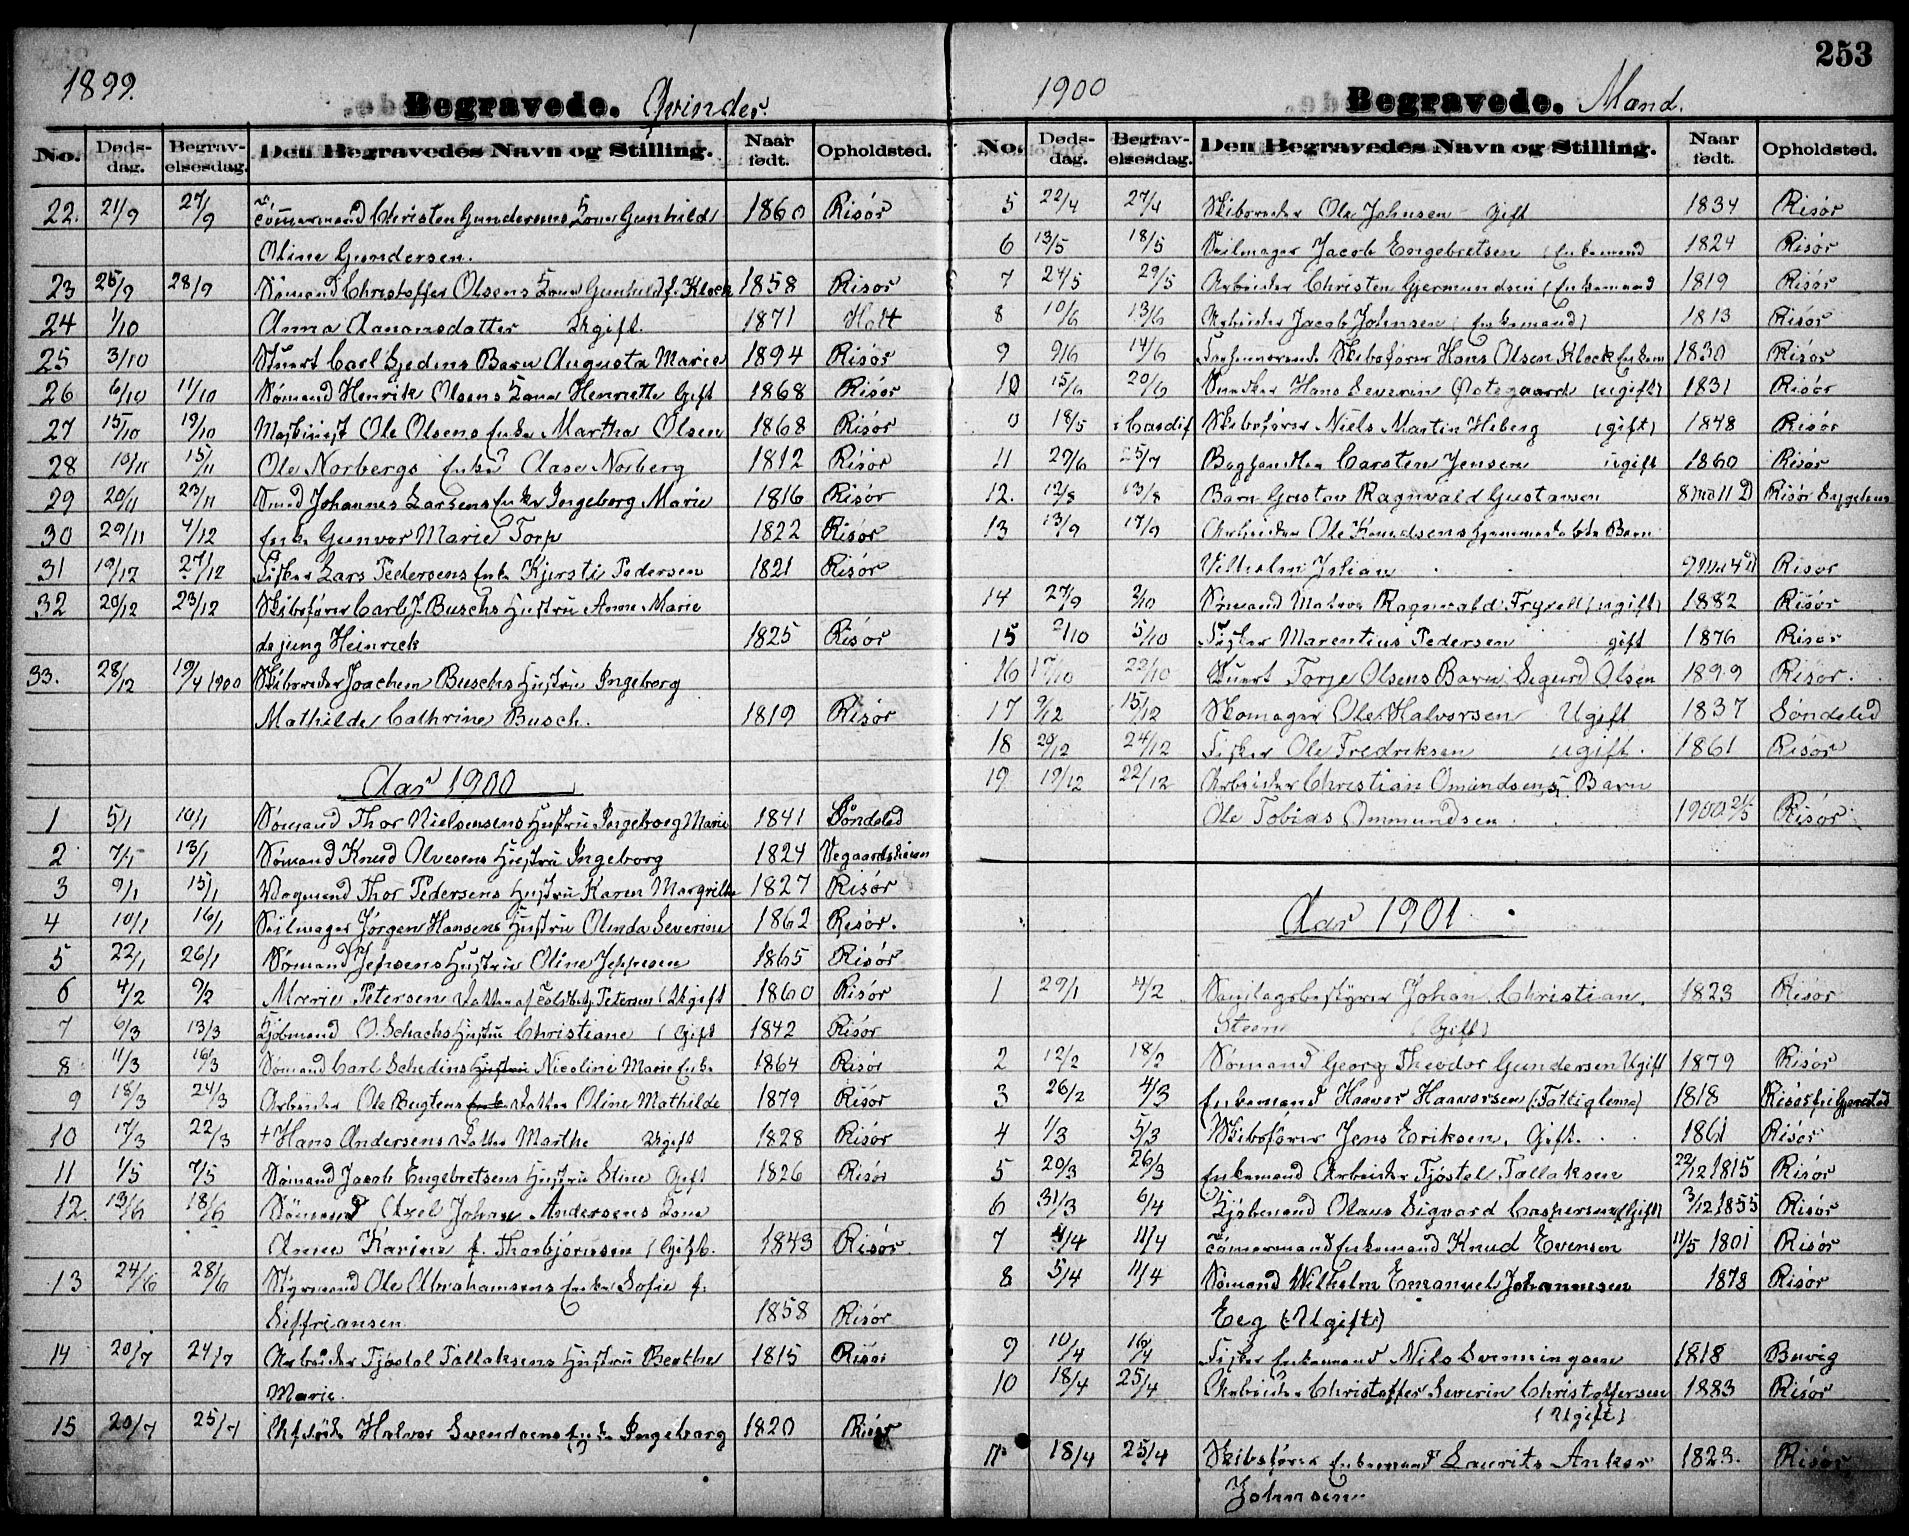 1899.
Begravede. Qvinder.
No. Døds-dag. Begrav-elsesdag. Den Begravedes Navn og Stilling. Naar født. Opholdsted.
22. 21/9 27/9 Tömmermand Christen Gundersens Kone Gunhild 1860 Risör
Oline Gundersen.
23 25/9 28/9 Sømand Christoffer Olsens Kone Gunhild f. Klock 1858 Risør
24 1/10 Anna Aanonsdatter Ugift. 1871 Holt
25 3/10 Stuert Carl Gjedens Barn Augusta Marie 1894 Risör
26 6/10 11/10 Sømand Henrik Olsens Kone Henriette Gift 1868 Risør
27 15/10 19/10 Maskinist Ole Olsens Enke Martha Olsen 1868 Risör
28 10/11 15/11 Ole Norbergs Enke Aase Norberg 1812 Risör
29 20/11 23/11 Smed Johannes Larsens Enke Ingeborg Marie 1816 Risör
30 29/11 4/12 Enke Gunvor Marie Torp 1822 Risör
31 19/12 27/12 Fisker Lars Pedersens Enke Kjersti Pedersen 1821 Risör
32 20/12 23/12 Skibsfører Carl J. Buschs Hustru Anne Marie
de jung Heinrich 1825 Risör
33. 28/12 19/4 1900 Skibsreder Joachem Buschs Hustru Ingeborg
Mathilde Cathrine Busch. 1819 Risör
Aar 1900
1 5/1 10/1 Sømand Thor Nielsensens Hustru Ingeborg Marie 1841 Söndeled
2 7/1 13/1 Sømand Knud Olvesens Hustru Ingeborg 1824 Vegaardsheien
3 9/1 15/1 Vognmand Thor Pedersens Hustru Karen Margrethe 1827 Risör
4 10/1 16/1 Seilmager Jørgen Hansens Hustru Olinda Severine 1862 Risör.
5 22/1 26/1 Sømand Jepsens Hustru Oline Jeppesen 1865 Risör
6 4/2 9/2 Marie Petersen Datter af Toldbetj. Petersen (Ugift 1860 Risör
7 6/3 13/3 Kjöbmand O. Schachs Hustru Christiane (Gift 1842 Risör
8 11/3 16/3 Sømand Carl Schedins Hustru Nicoline Marie Enke 1864 Risör
9 18/3 24/3 Arbeider Ole Bugtens Enke Datter Oline Mathilde 1879 Risör
10 17/3 22/3 + Hans Andersens Datter Marthe Ugift 1828 Risör
11 1/5 7/5 Sømand Jacob Engebretsens Hustru Stine Gift 1826 Risör
12. 13/6 18/6 Sömand Axel Johan Andersens Kone
Anne Karine f. Thorbjørnsen (Gift. 1843 Risör.
13 24/6 28/6 Styrmand Ole Abrahamsens Enke Sofie f.
Seffriansen. 1858 Risör
14 20/7 24/7 Arbeider Tjöstol Tallaksens Hustru Berthe 1815 Risör
Marie.
15 20/7 25/7 Halvor Svendsens Enke Ingeborg 1820 Risör
1900
Begravede. Mænd.
253
No. Døds-dag. Begrav-elsesdag. Den Begravedes Navn og Stilling. Naar født. Opholdsted.
5 22/4 27/4 Skibsreder Ole Johnsen Gift 1834 Risör
6 13/5 18/5 Seilmager Jacob Engebretsen (Enkemand 1824 Risör
7 24/5 29/5 Arbeider Christen Gjermundsen (Enkemand 1819 Risör
8 10/6 13/6 Arbeider Jacob Johnsen (Enkemand) 1813 Risör
9 9/6 14/6 Forhenværende Skibsfører Hans Olsen Klock Enkem 1830 Risör
10 15/6 20/6 Snedker Hans Severin Østegaard (ugift) 1831 Risör
0 18/5 i Cardif Skibsfører Niels Martin Heberg (gift) 1848 Risör
11 29/6 5/7 Boghandler Carsten Jensen ugift 1860 Risör
12. 12/8 13/8 Barn Gustav Ragnvald Gustavsen 8 mo 11 D Risör
13 13/9 17/9 Arbeider Ole Knudsens hjemmedøbte Barn
Vilhelm Johan 9 Ma 4 D Risør
14 27/9 2/10 Sömand Ragnvald Fryxell (ugift) 1882 Risör
15 2/10 5/10 Fisker Marentius Pedersen gift 1876 Risør
16 17/10 22/10 Stuert Torje Olsens Barn Sigurd Olsen 1899 Risör.
17 9/12 15/12 Skomager Ole Halvorsen Ugift 1837 Söndeled
18 20/12 24/12 Fisker Ole Fredriksen ugift. 1861 Risör
19 19/12 22/12 Arbeider Christian Omundsens Barn
Ole Tobias Ommundsen 1900 21/5 Risör
Aar 1901.
1 29/1 4/2 Samlagsbestyrer Johan Christian 1823 Risör
Steen (Gift)
2 12/2 18/2 Sømand Georg Theodor Gundersen Ugift 1879 Risör
3 26/2 4/3 Enkemand Haavor Haavorsen (Fattiglem) 1818 Risör
4 1/3 5/3 Skibsfører Jens Eriksen, Gift. 1861 Risör
5 20/3 26/3 Enkemand Arbeider Tjöstol Tallaksen 22/12 1815 Risör
6 31/3 6/4 Kjöbmand Olaus Sigvard Caspersen (Gift) 3/12 1855 Risör
7 4/4 11/4 Tömmermand Enkemand Knud Evensen 11/5 1801 Risör
8 5/4 11/4 Sømand Wilhelm Emanuel Johannesen 1878 Risör
Eeg (Ugift)
9 10/4 16/4 Fisker Enkemand Nils Svenningsen 1818 Buvig
10 18/4 25/4 Arbeider Christoffer Severin Christoffersen 1883 Risör
(Ugift)
11 18/4 25/4 Skibsfører Enkemand Laurits Anker 1823. Risør
Johnsen